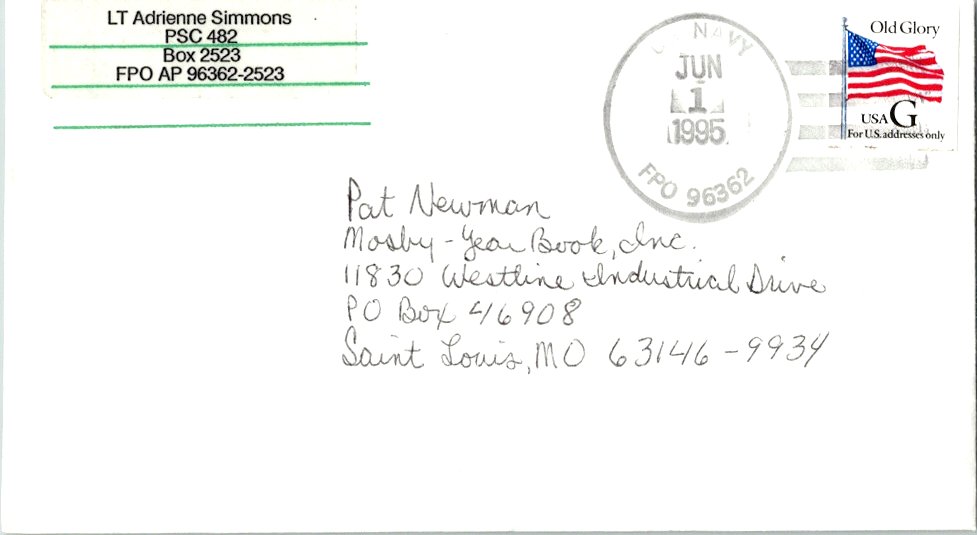 LT Adrienne Simmons
PSC 482
Box 2523
FPO AP 96362-2523
U.S. NAVY
JUN
1
1995
FPO 96362
Old Glory
USA G
For U.S. addresses only
Pat Newman
Mosby-Year Book, Inc.
11830 Westline Industrial Drive
PO Box 46908
Saint Louis, MO 63146-9934